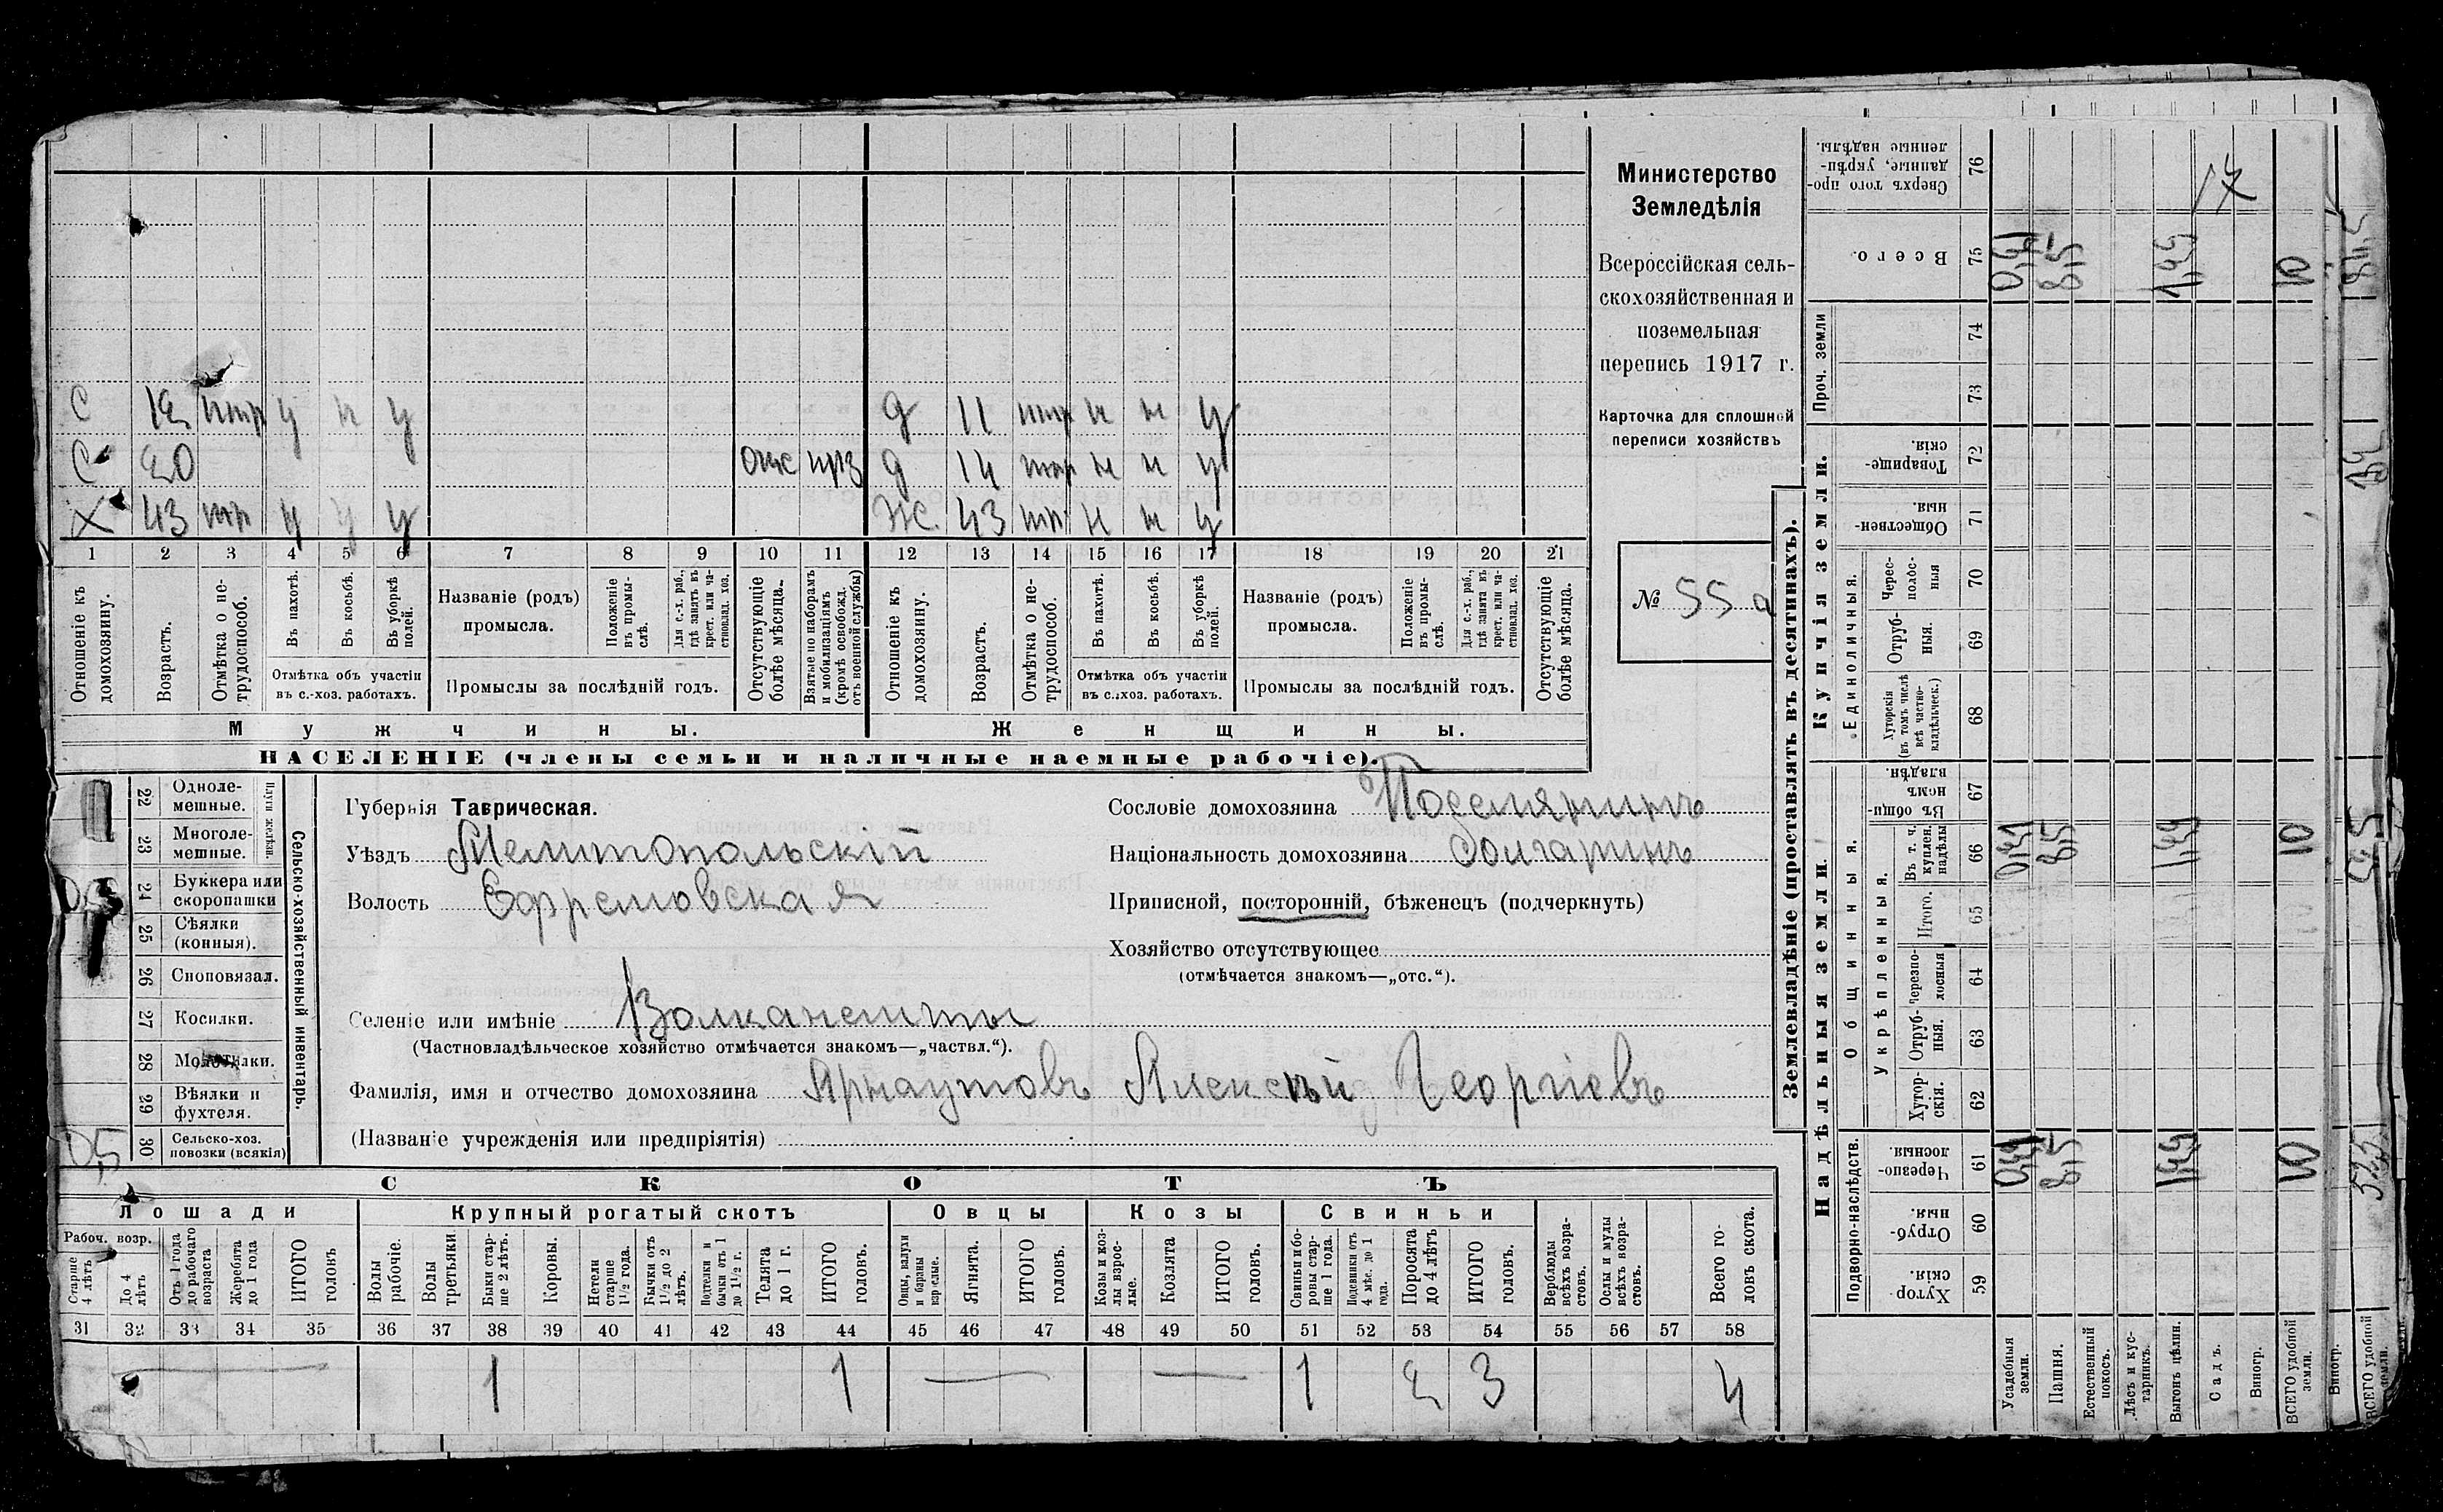 С 12 нтр у н у д 11 нтр н н у
С 20 отс прз д 14 нтр н н у
Х 43 тр у у у Ж 43 тр н н у
1 2 3 4 5 6 7 8 9 10 11 12 13 14 15 16 17 18 19 20 21
Отношеніе къ домохозяину.
Возрастъ.
Отмѣтка о нетрудоспособ.
Въ пахотѣ.
Въ косьбѣ.
Въ уборкѣ полей.
Отмѣтка объ участіи
въ с.-хоз. работахъ.
Названіе (родъ)
промысла.
Положеніе въ промыслѣ.
Для с.-х. раб., гдѣ занятъ въ крест. или частновлад. хоз.
Промыслы за послѣдній годъ.
Отсутствующіе болѣе мѣсяца.
Взятые по наборамъ и мобилизаціямъ (кромѣ освобожд. отъ военной службы)
Отношеніе къ домохозяину.
Возрастъ.
Отмѣтка о нетрудоспособ.
Въ пахотѣ.
Въ косьбѣ.
Въ уборкѣ полей.
Отмѣтка объ участіи
въ с.-хоз. работахъ.
Названіе (родъ)
промысла.
Положеніе въ промыслѣ.
Для с.-х. раб., гдѣ занята въ крест. или частновлад. хоз.
Промыслы за послѣдній годъ.
Отсутствующіе болѣе мѣсяца.
Мужчины. Женщины.
НАСЕЛЕНІЕ (члены семьи и наличные наемные рабочіе).
Министерство
Земледѣлія
Всероссійская сель-
скохозяйственная и
поземельная
перепись 1917 г.
Карточка для сплошной
переписи хозяйствъ
№ 55а
22 Одноле-
мешные.
23 Многоле-
мешные.
Плуги желѣзн.
24 Буккера или
скоропашки
25 Сѣялки
(конныя).
26 Сноповязал.
27 Косилки.
28 Молотилки.
29 Вѣялки и
фухтеля.
0,5 30 Сельско-хоз.
повозки (всякія)
Сельско-хозяйственный инвентарь.
Губернія Таврическая.
Уѣздъ Мелитопольскій
Волость Ефремовская
Селеніе или имѣніе Волканешты
(Частновладѣльческое хозяйство отмѣчается знакомъ—„частвл.“).
Фамилія, имя и отчество домохозяина Арнаутовъ Алексѣй Георгіевъ
(Названіе учрежденія или предпріятія)
Сословіе домохозяина Поселянинъ
Національность домохозяина болгаринъ
Приписной, посторонній, бѣженецъ (подчеркнуть)
Хозяйство отсутствующее
(отмѣчается знакомъ—„отс.“).
СКОТЪ
Лошади Крупный рогатый скотъ Овцы Козы Свиньи
Рабоч. возр.
Старше 4 лѣтъ
До 4 лѣтъ
Отъ 1 года до рабочаго возраста
Жеребята до 1 года
ИТОГО головъ
Волы рабочіе.
Волы третьяки
Быки старше 2 лѣтъ.
Коровы.
Нетели старше 1½ года.
Бычки отъ 1½ до 2 лѣтъ.
Подтелки и бычки отъ 1 до 1½ г.
Телята до 1 г.
ИТОГО головъ.
Овцы, валухи и бараны взрослые.
Ягнята.
ИТОГО головъ.
Козы и козлы взрослые.
Козлята
ИТОГО головъ.
Свиньи и боровы старше 1 года.
Подсвинки отъ 4 мѣс. до 1 года.
Поросята до 4 лѣтъ
ИТОГО головъ.
Верблюды всѣхъ возрастовъ.
Ослы и мулы всѣхъ возрастовъ.
Всего головъ скота.
31 32 33 34 35 36 37 38 39 40 41 42 43 44 45 46 47 48 49 50 51 52 53 54 55 56 57 58
1 1 1 2 3 4
Землевладѣніе (проставлять въ десятинахъ).
Надѣльныя земли. Купчія земли. Проч. земли
Подворно-наслѣдств. Общинныя. Укрѣпленныя. Единоличныя.
Хуторскія. 59
Отрубныя. 60
Черезполосныя. 61
Хуторскія. 62
Отрубныя. 63
Черезполосныя 64
Итого. 65
Въ т. ч. куплен. надѣлы 66
Въ общинномъ владѣн. 67
Хуторскія (въ томъ числѣ всѣ частновладѣльческ.) 68
Отрубныя. 69
Чересполосныя 70
Общественныя. 71
Товарищескія. 72
73
74
Всего. 75
Сверхъ того проданные, укрѣпленные надѣлы. 76
Усадебныя земли.
Пашня.
Естественный покосъ.
Лѣсъ и кустарникъ.
Выгонъ цѣлин.
Садъ.
Виногр.
ВСЕГО удобной земли.
Виногр.
ВСЕГО удобной земли.
8,5 10
8,5 10
8,5 10
17